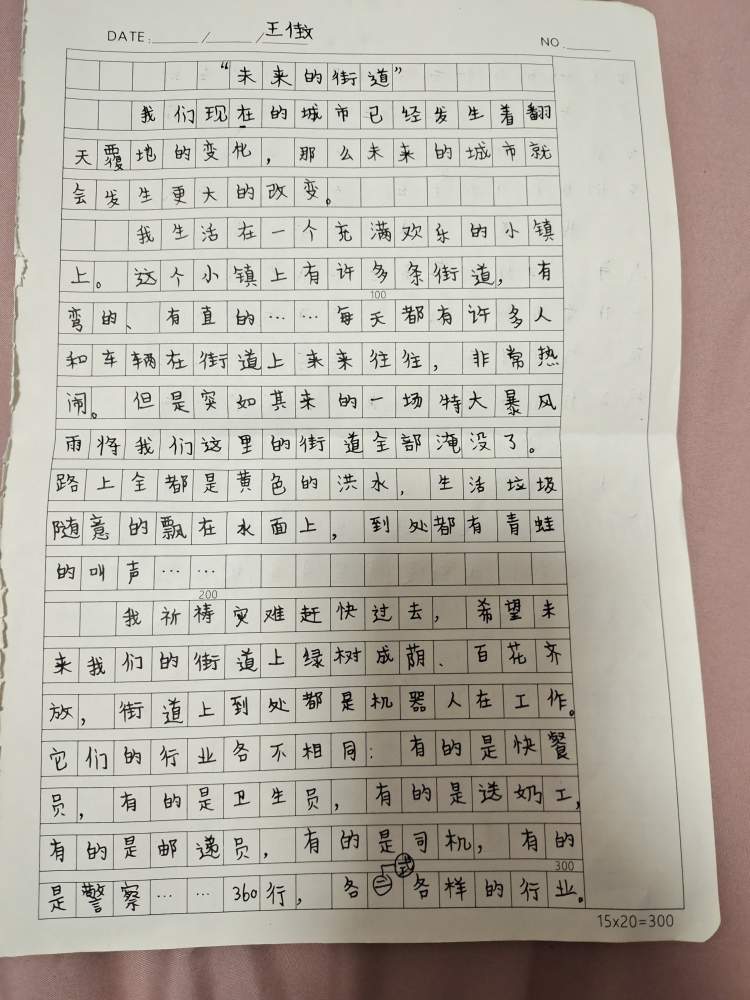 DATE: / / 王佳
NO.
“未来的街道”
我们现在的城市已经发生着翻
天覆地的变化，那么未来的城市就
会发生更大的改变。
我生活在一个充满欢乐的小镇
上。这个小镇上有许多条街道，有
100
弯的、有直的……每天都有许多人
和车辆在街道上来来往往，非常热
闹。但是突如其来的一场特大暴风
雨将我们这里的街道全部淹没了。
路上全都是黄色的洪水，生活垃圾
随意的飘在水面上，到处都有青蛙
的叫声……
200
我祈祷灾难赶快过去，希望未
来我们的街道上绿树成荫、百花齐
放，街道上到处都是机器人在工作。
它们的行业各不相同：有的是快餐
员，有的是卫生员，有的是送奶工，
有的是邮递员，有的是司机，有的
式
300
是警察……360行，各各样的行业。
15x20=300